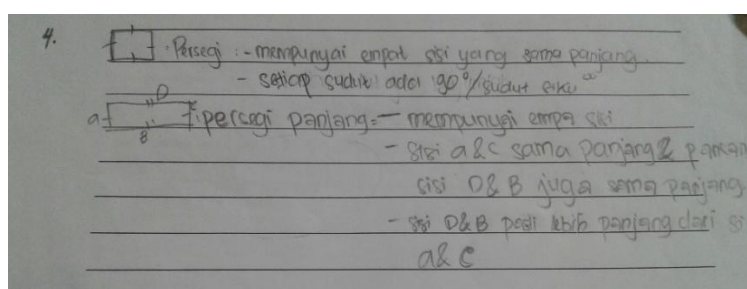 4. Persegi : - mempunyai empat sisi yang sama panjang.
- setiap sudut ada 90°/sudut siku"
D
a c : persegi panjang = - mempunyai empa sisi
B
- sisi a & c sama panjang &
sisi D & B juga sama panjang
- sisi D & B pasti lebih panjang dari si
a & c